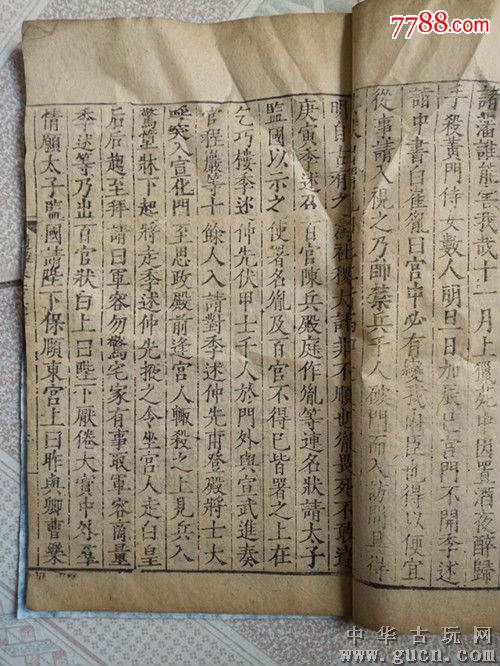 7788.com
諸藩誰能至我哉十一月上獵苑置酒夜醉歸
手殺黃門侍女數人明旦日加辰巳宮門不開季述
詣中書白崔胤曰宮中必有變我內臣也得以便宜
從事請入視之乃帥禁兵千人破門而入訪問具得
古有之為社稷大計非不順也胤畏死不敢違
庚寅季述召百官陳兵殿庭作胤等連名狀請太子
監國以示之使署名胤及百官不得已皆署之上在
乞巧樓季述仲先伏甲士千人於門外與宣武進奏
官程巖等十餘人入請對季述仲先甫登殿將士大
呼突入宣化門至思政殿前逢宮人輒殺之上見兵入
驚墮牀下起將走季述仲先掖之令坐宮人走白皇
后后趨至拜請曰軍容勿驚宅家有事取軍容商量
季述等乃出百官狀白上曰陛下厭倦大寶中外羣
情願太子監國請陛下保願東宮上曰昨與卿曹樂
中华古玩网
www.gucn.com